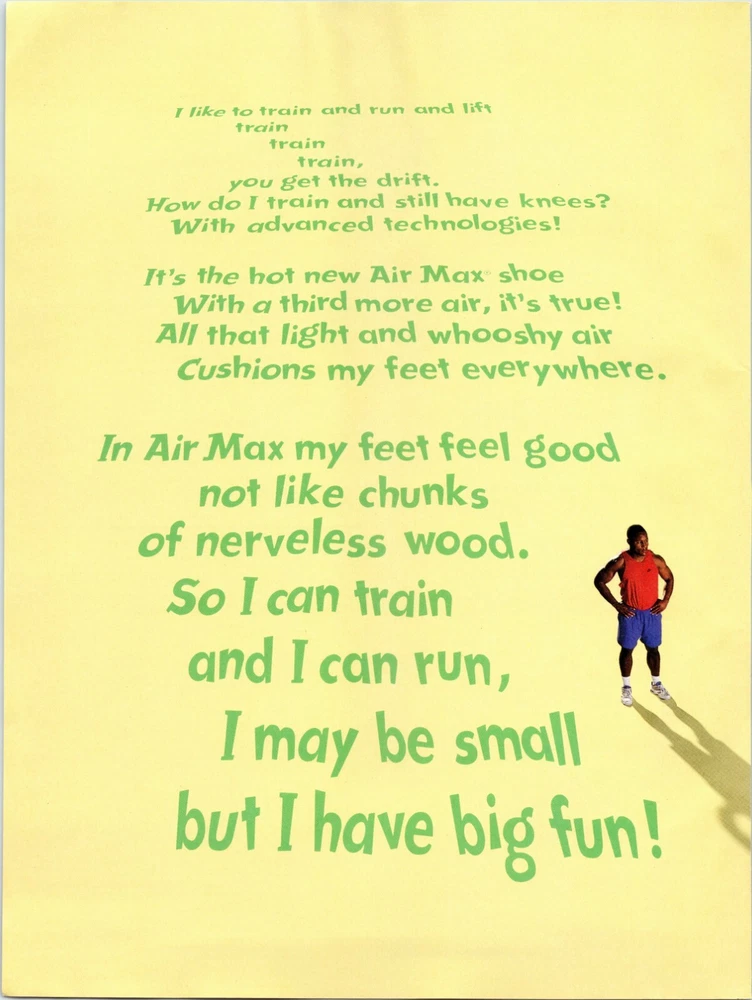 I like to train and run and lift
train
train
train,
you get the drift.
How do I train and still have knees?
With advanced technologies!
It's the hot new Air Max® shoe
With a third more air, it's true!
All that light and whooshy air
Cushions my feet everywhere.
In Air Max my feet feel good
not like chunks
of nerveless wood.
So I can train
and I can run,
I may be small
but I have big fun!